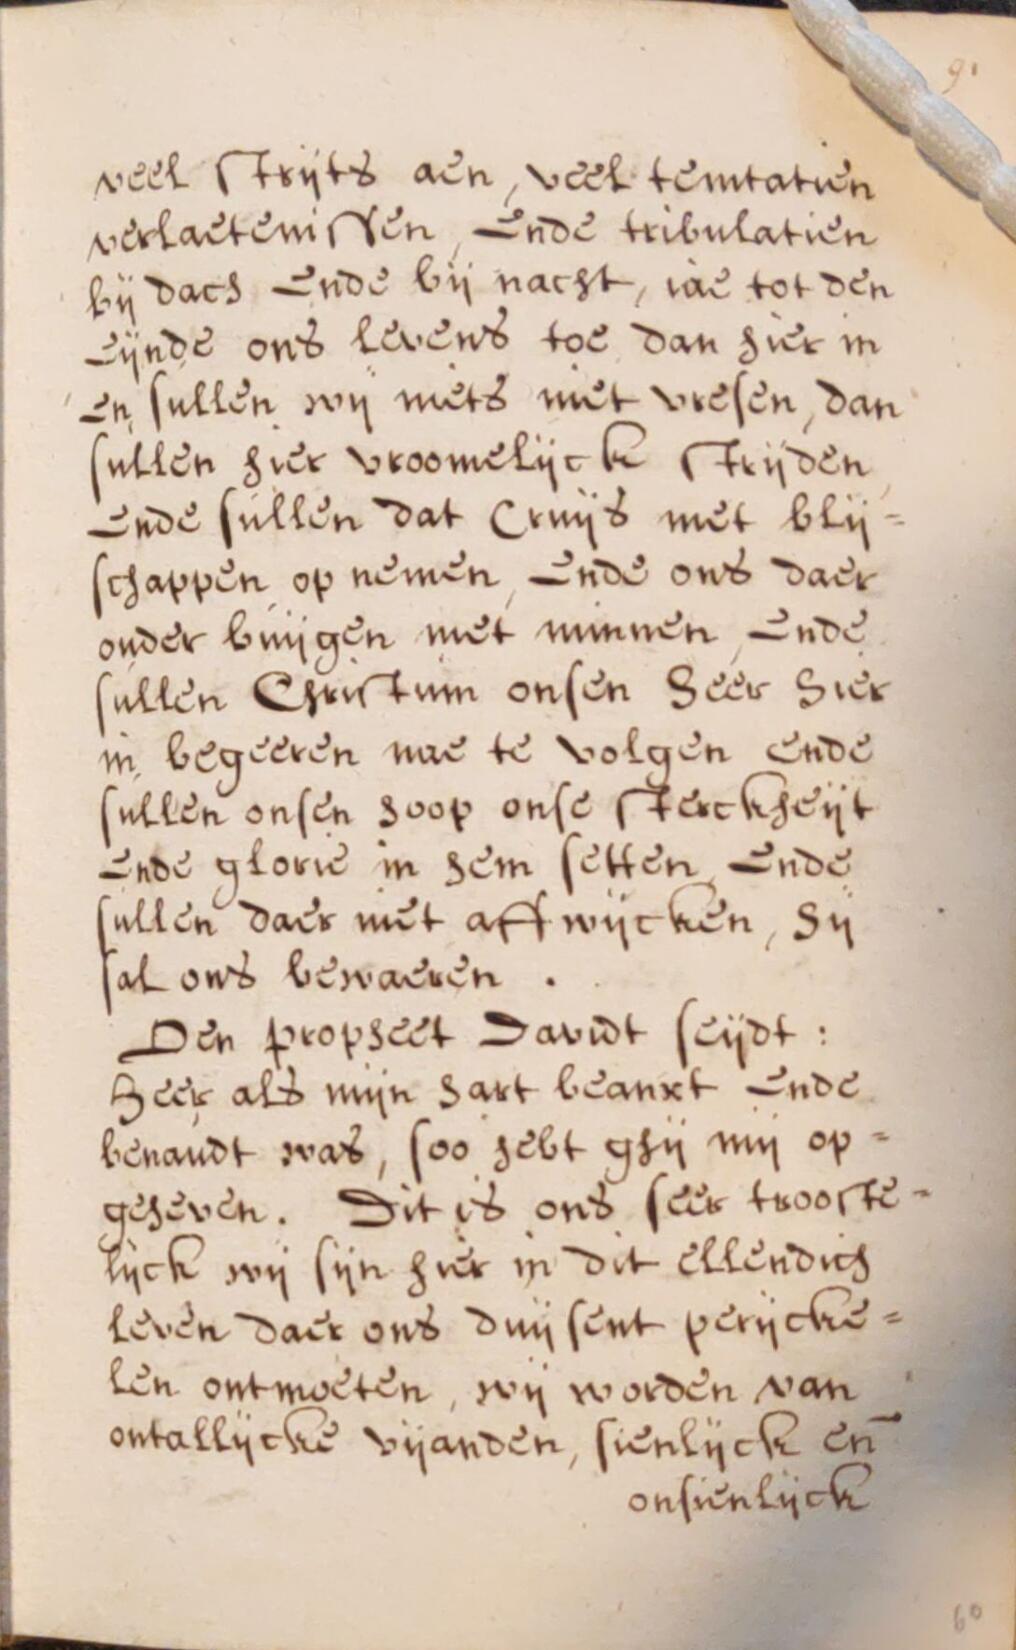 91
veel strijts aen, veel temtatien
verlaetenissen, Ende tribulatien
bij dach Ende bij nacht, iae tot den
Eijnde ons levens toe dan hier in
En sullen wij niets niet vresen, dan
sullen hier vroomelijck strijden
Ende sullen dat Cruijs met blij=
schappen op nemen, Ende ons daer
onder buijgen met minnen, Ende
sullen Christum onsen Heer Hier
in begeeren nae te volgen Ende
sullen onsen hoop onse sterckheijt
Ende glorie in hem setten, Ende
sullen daer niet aff wijcken, Hij
sal ons bewaeren .
Den propheet Davidt seijdt :
Heer als mijn hart beanxt Ende
benaudt was, soo hebt ghij mij op=
geheven. Dit is ons seer trooste=
lijck wij sijn hier in dit ellendich
leven daer ons duijsent perijcke=
len ontmoeten, wij worden van
ontallijcke vijanden, sienlijck en̄
onsienlijck
60